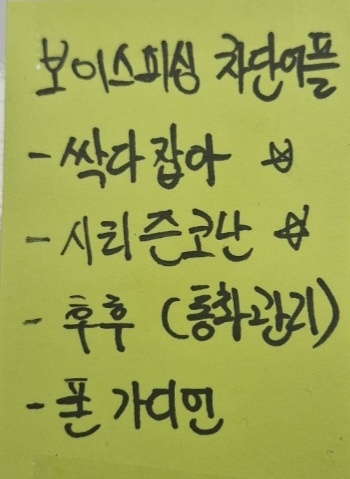 보이스피싱 차단어플
- 싹다잡아 ☆
- 시티즌코난 ☆
- 후후 (통화관리)
- 폰가디언